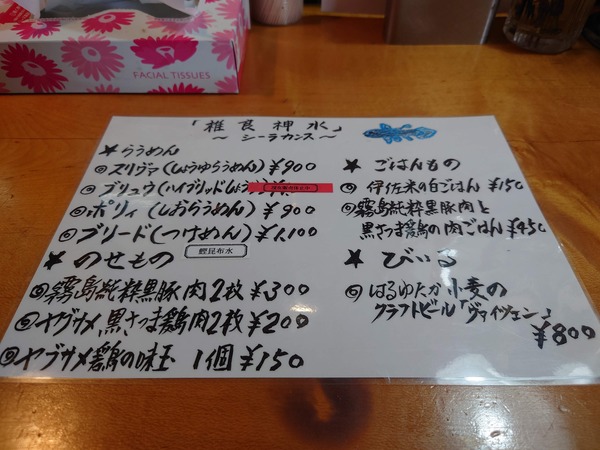 FACIAL TISSUES
「椎良神水」
～シーラカンス～
★ らうめん
◎ スリヴァ(しょうゆらうめん) ¥900
◎ ブリュウ(ハイブリッドしょう
◎ ポリィ(しおらうめん) ¥900
◎ ブリード(つけめん) ¥1,100
鰹昆布水
★ のせもの
◎ 霧島純粋黒豚肉2枚 ¥300
◎ ヤブサメ黒さつま鶏肉2枚 ¥200
◎ ヤブサメ鶏の味玉 1個 ¥150
★ ごはんもの
◎ 伊佐米の白ごはん ¥150
◎ 霧島純粋黒豚肉と
黒さつま鶏の肉ごはん ¥450
★ びいる
◎ はるゆたか小麦の
クラフトビール「ヴァイツェン」
¥800